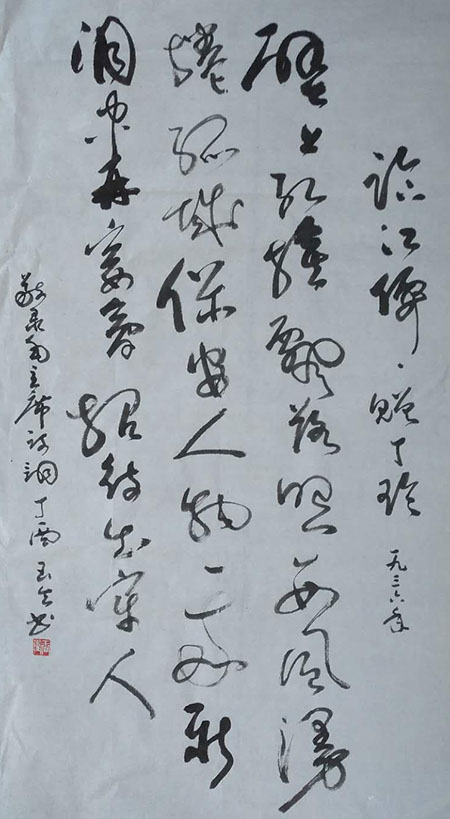 临江仙·赠丁玲 一九三六年
壁上红旗飘落照西风漫
捲孤城保安人物一时新
洞中开宴会招待出牢人
敬录毛主席诗词丁酉书